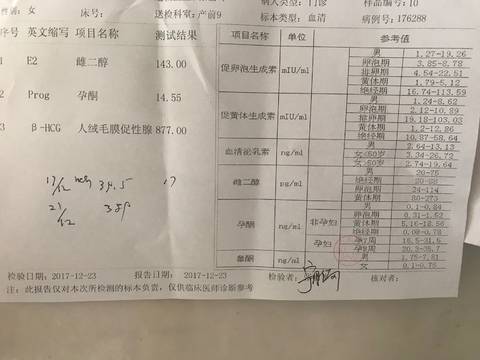 性别：女 床号： 病人类型：门诊 样品编号：10
送检科室：产前9 标本类型：血清 病例号：176288
序号 英文缩写 项目名称 测试结果 项目名称 单位 参考值
1 E2 雌二醇 143.00
2 Prog 孕酮 14.55
3 β-HCG 人绒毛膜促性腺 877.00
促卵泡生成素 mIU/ml 男 1.27-19.26
卵泡期 3.85-8.78
排卵期 4.54-22.51
黄体期 1.79-5.12
绝经期 16.74-113.59
促黄体生成素 mIU/ml 男 1.24-8.62
卵泡期 2.12-10.89
排卵期 19.18-103.03
黄体期 1.2-12.86
绝经期 10.87-58.64
血清泌乳素 ng/ml 男 2.64-13.13
女<50岁 3.34-26.72
女>50岁 2.74-19.64
雌二醇 pg/ml 男 20-75
绝经期
卵泡期 24-114
黄体期 80-273
孕酮 ng/ml 男 0.1-0.84
非孕妇 卵泡期 0.31-1.52
黄体期 5.16-18.56
绝经期 0.08-0.78
孕妇
睾酮 ng/ml 男 1.75-7.81
女 0.1-0.75
17/12 HCG 34.5 17
21/12 389
检验日期：2017-12-23 报告日期：2017-12-23 检验者： 核对者：
注：此报告仅对本次所检测的标本负责，仅供临床医师诊断参考